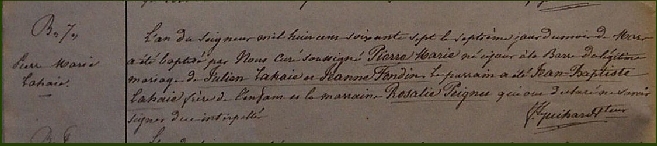 B. 7.
Pierre Marie
Lahaie.
L'an du Seigneur mil huit cens soixante sept le septième jour du mois de Mars
a été baptisé par Nous Curé soussigné Pierre Marie né ce jour à la Barre du légitime
mariage de Julien Lahaie et Jeanne Fondin. Le parrain a été Jean-Baptiste
Lahaie frère de l'enfant et la marraine Rosalie Peigné qui ont déclaré ne savoir
signer de ce interpellé
Guihard